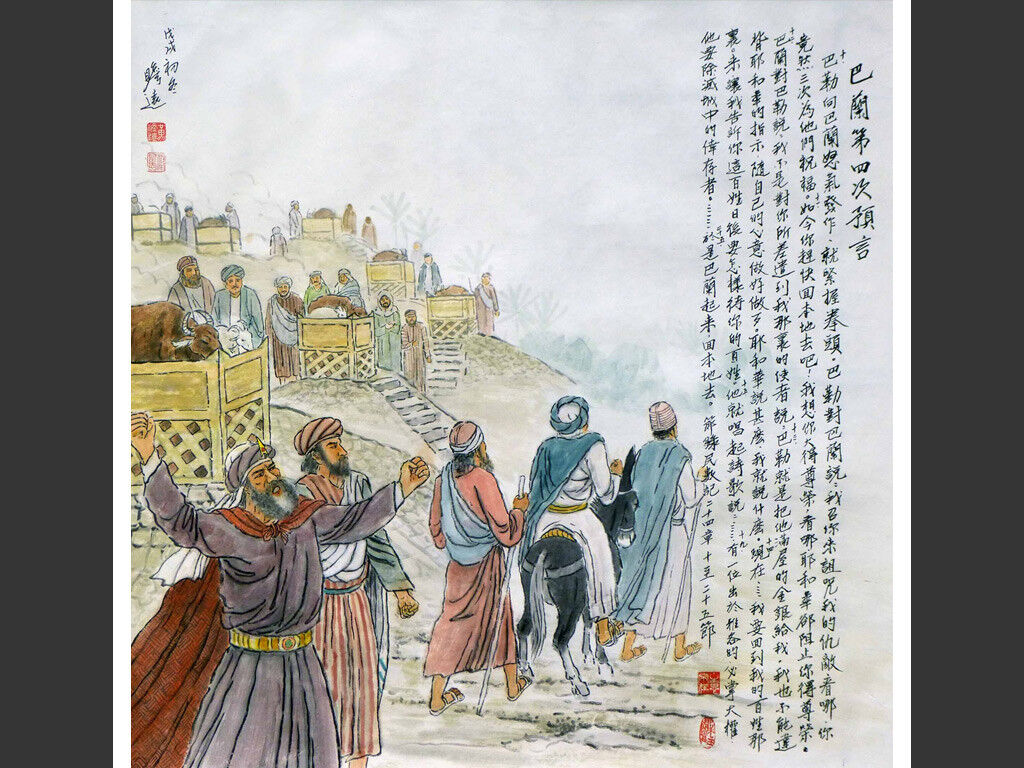 巴蘭第四次預言
十巴勒向巴蘭怒氣發作,就緊握拳頭。巴勒對巴蘭說:我召你來詛咒我的仇敵看哪你
竟然三次為他們祝福。十一如今你趕快回本地去吧!我想你大得尊榮,看哪耶和華卻阻止你得尊榮。
十二巴蘭對巴勒說:我不是對你所差遣到我那裏的使者說:十三巴勒就是把他滿屋的金銀給我,我也不能違
背耶和華的指示隨自己的心意做好做歹。耶和華說甚麼我就說什麼。十四現在……我要回到我的百姓那
裏。來讓我告訴你這百姓日後要怎樣待你的百姓。十五他就唱起詩歌說:……十九有一位出於雅各的必掌大權
他要除滅城中的倖存者。……二五於是巴蘭起來,回本地去。節錄民數記二十四章十至二十五節
戊戌初冬
瞻遠